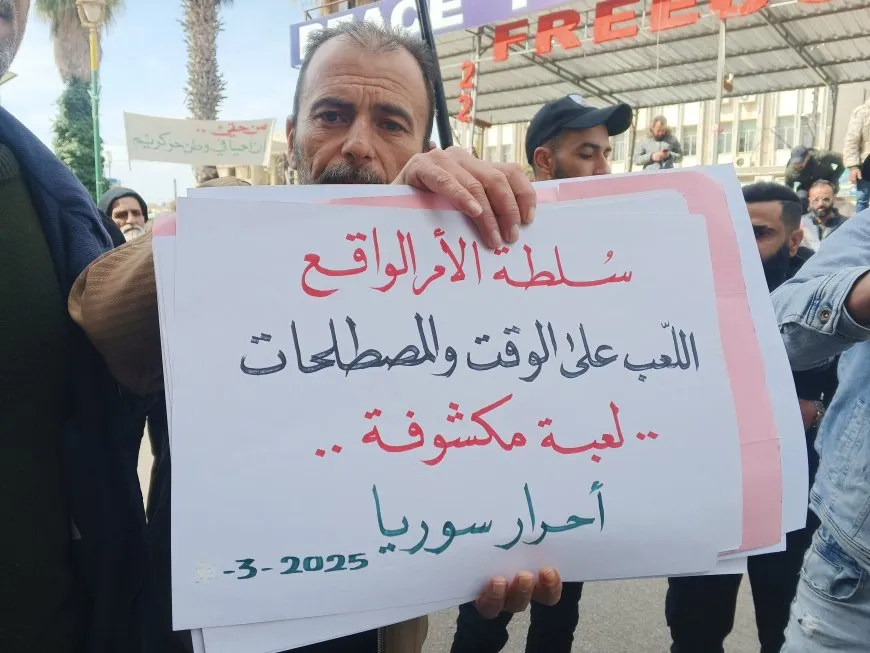 PEACE
FREED
22
من حقي ..
سُلطة الأمر الواقع
اللّعب على الوقت والمصطلحات
.. لعبة مكشوفة ..
أحرار سوريا
-3-2025